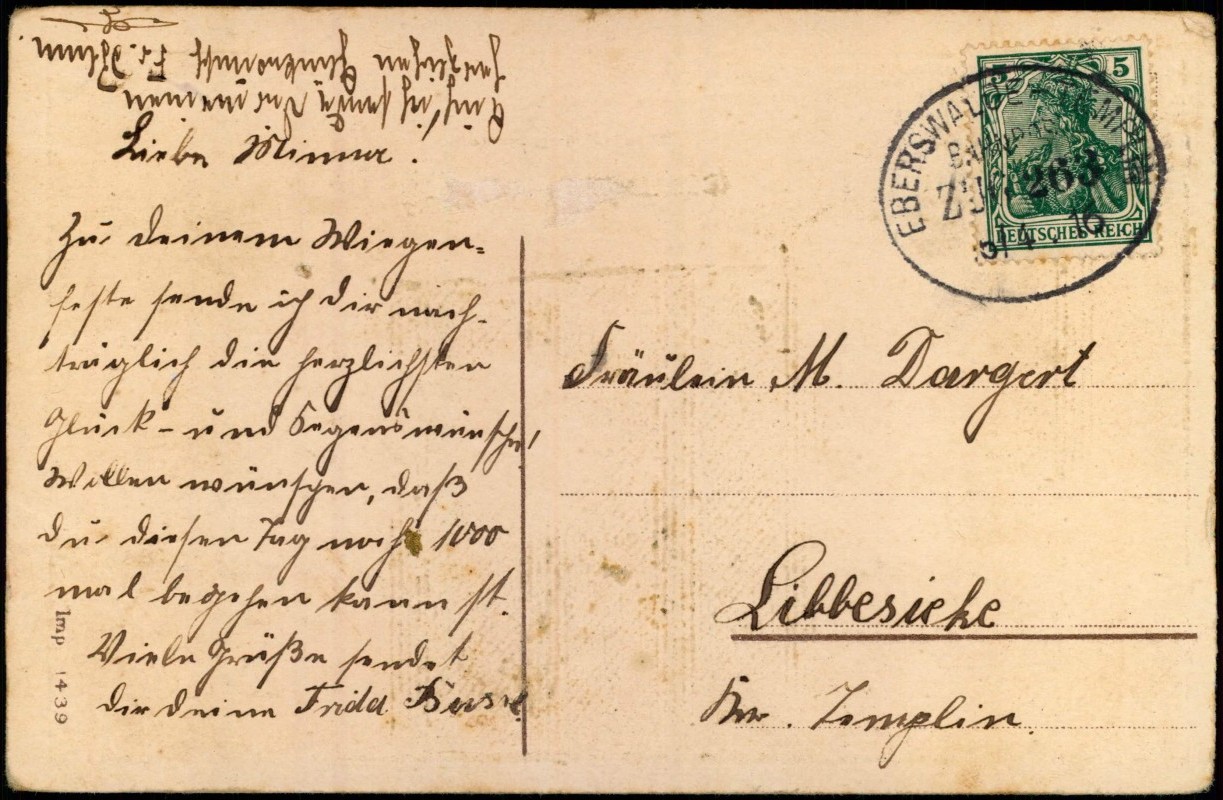 Liebe Minna.
Zu deinem Wiegen-
feste sende ich dir nach-
träglich die herzlichsten
Glück- und Segenswünsche!
Wollen wünschen, daß
du diesen Tag noch 1000
mal begehen kannst.
Viele Grüße sendet
dir deine Frida
Auch ich sende Dir meinen
herzlichen Glückwunsch Fr.
5 5
DEUTSCHES REICH
EBERSWALDE
BAHNPOST
ZUG 263
4.16
Fräulein M. Dargert
Libbesicke
Kr. Templin.
Imp 1439